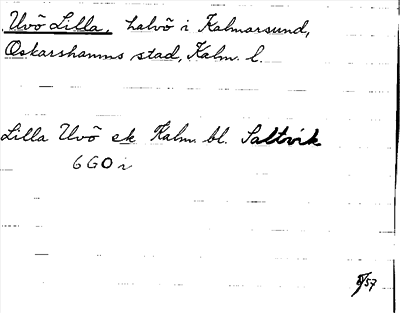 Uvö Lilla, halvö i Kalmarsund,
Oskarshamns stad, Kalm. l.
Lilla Uvö ek Kalm. bl. Saltvik
6 G O i
57